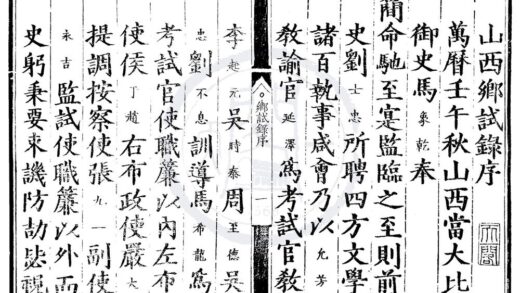 山西鄉試錄序
萬曆壬午秋山西當大比
御史馬象乾奉
簡命馳至寔監臨之至則前
史劉士忠所聘四方文學
諸百執事咸會乃以允芳
教諭官延澤爲考試官教
鄉試錄序
一
李起元吳時泰周至德吳
忠劉不息訓導馬希龍爲
考試官使職簾以內左布
使侯于趙右布政使嚴大
提調按察使張九一副使
永吉監試使職簾以外而
史躬秉要束譏防劼毖